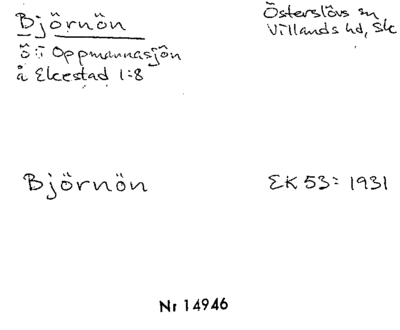 Björnön
Österslövs sn
Villands hd, Sk
ö i Oppmannasjön
å Elcestad 1:8
Björnön
EK 53: 1931
Nr 14946